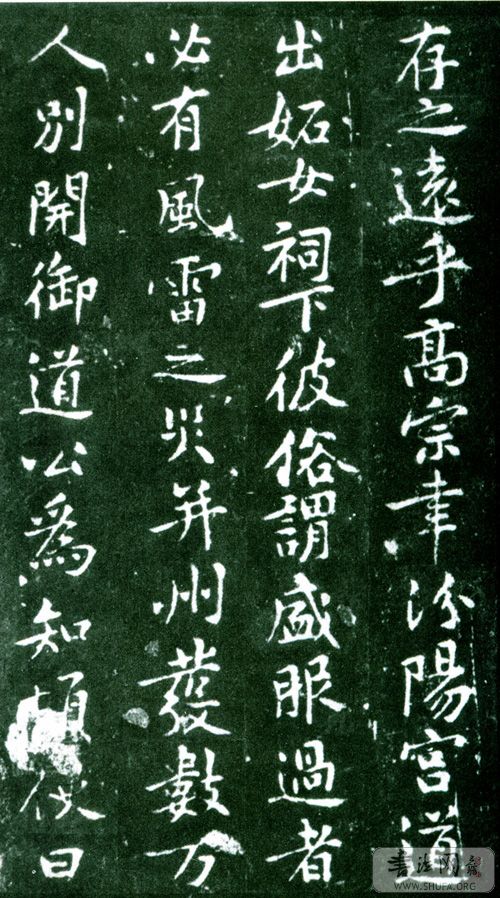 存之遠乎髙宗幸汾陽宮道
出妬女祠下彼俗謂盛服過者
必有風雷之災并州發數万
人別開御道公爲知頓使曰
WWW.SHUFA.ORG